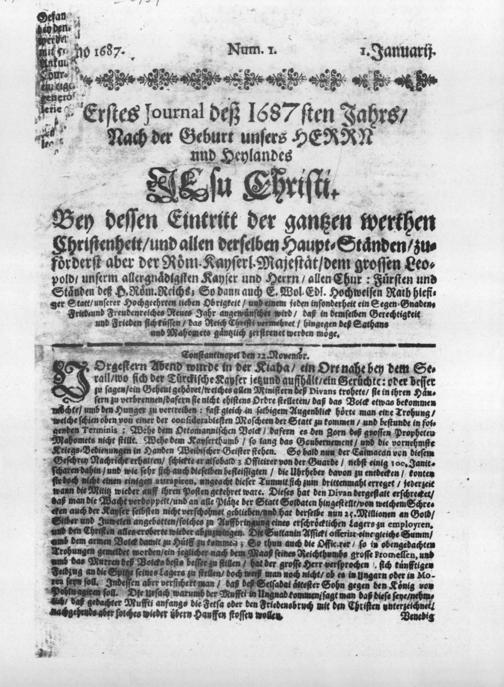 no 1687.
Num. 1.
1. Januarij.
Erstes Journal deß 1687sten Jahrs/
Nach der Geburt unsers HERRN
und Heylandes
JEsu Christi.
Bey dessen Eintritt der gantzen werthen
Christenheit/und allen derselben Haupt-Ständen/zu-
förderst aber der Röm. Kayserl. Majestät/dem grossen Leo-
pold/unserm allergnädigsten Kayser und Herrn/allen Chur: Fürsten und
Ständen deß H. Röm. Reichs; So dann auch E. Wol. Edl. Hochweisen Rath hiesi-
ger Statt/unserer Hochgeehrten lieben Obrigkeit/und einem jeden insonderheit ein Segen-Gnaden-
Fried-und Freudenreiches Neues Jahr angewünschet wird/daß in demselben Gerechtigkeit
und Frieden sich küssen/das Reich Christi vermehret/hingegen deß Sathans
und Mahomets gäntzlich zerstreuet werden möge.
Constantinopel den 12. Novembr.
VOrgestern Abend wurde in der Kiaha/ein Ort nahe bey dem Se-
rail/wo sich der Türckische Kayser jetzund auffhält/ein Gerüchte: oder besser
zu sagen/ein Geheul gehöret/welches allen Ministern deß Divans trohete/sie in ihren Häu-
sern zu verbrennen/dafern sie nicht ehistens Ordre stelleten/daß das Volck etwas bekommen
möchte/und den Hunger zu vertreiben: fast gleich in selbigem Augenblick hörte man eine Trohung/
welche schien oben von einer der considerablesten Moscheen der Statt zu kommen/und bestunde in fol-
genden Terminis: Wehe dem Ottomannischen Volck/dafern es den Zorn deß grossen Propheten
Mahomets nicht stillt. Wehe dem Kayserthumb/so lang das Gouvernement/und die vornehmste
Kriegs-Bedienungen in Handen Weibischer Geister stehen. So bald nun der Caimacan von diesem
Geschrey Nachricht erhalten/schickte er alsobald 3 Officirer von der Guarde/nebst einig 100. Janit-
scharen dahin/und wie sehr sich auch dieselben befleissigten/die Urheber davon zu entdecken/konten
sie doch nicht einen einigen attrapiren, ungeacht dieser Tumult sich zum drittenmahl erreget/jederzeit
wann die Militz wieder auff ihren Posten gekehret ware. Dieses hat den Divan dergestalt erschrecket/
daß man die Wacht verdoppelt/und an alle Plätze der Statt Soldaten hingestellt/von welchen Schre-
cken auch der Kayser selbsten nicht verschonet geblieben/und hat derselbe nun 25. Millionen an Gold/
Silber und Jubelen angebotten/solches zu Auffbringung eines erschröcklichen Lagers zu employren,
und den Christen alles eroberte wieder abzuzwingen. Die Sultanin Assicki offerirt eine gleiche Summ/
und dem armen Volck damit zu Hülff zu kommen; So thun auch die Officirer/so in obengedachten
Trohungen gemeldet worden/ein jeglicher nach dem Maaß seines Reichthumbs grosse Promessen, und
und das Murren deß Volcks desto besser zu stillen/hat der grosse Herr versprochen/sich künfftigen
Feldzug an die Spitze seines Lagers zu stellen/doch weiß man noch nicht/ob es in Ungarn oder in Mo-
rea seyn soll. Indessen aber versichert man/daß deß ältester Sohn gegen den König von
Pohln agiren soll. Die Ursach warumb der Muffti in Ungnad kommen/sagt man daß diese seye/nehm-
lich/daß gedachter Muffti anfangs die Fetfa oder den Friedensbruch mit den Christen unterzeichnet/
nachgehends aber solches wieder übern Hauffen stossen wollen.
Venedig